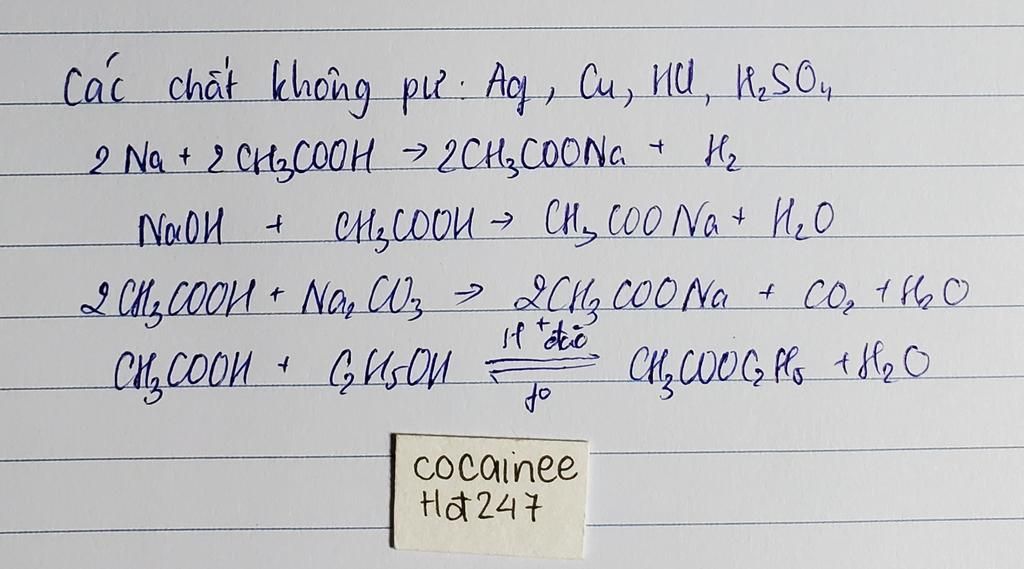 Các chất không pư: Ag, Cu, HCl, H₂SO₄
2Na + 2CH₃COOH → 2CH₃COONa + H₂
NaOH + CH₃COOH → CH₃COONa + H₂O
2CH₃COOH + Na₂CO₃ → 2CH₃COONa + CO₂ + H₂O
CH₃COOH + C₂H₅OH ⇌ CH₃COOC₂H₅ + H₂O
H⁺ đặc
t°
cocainee
Hot247